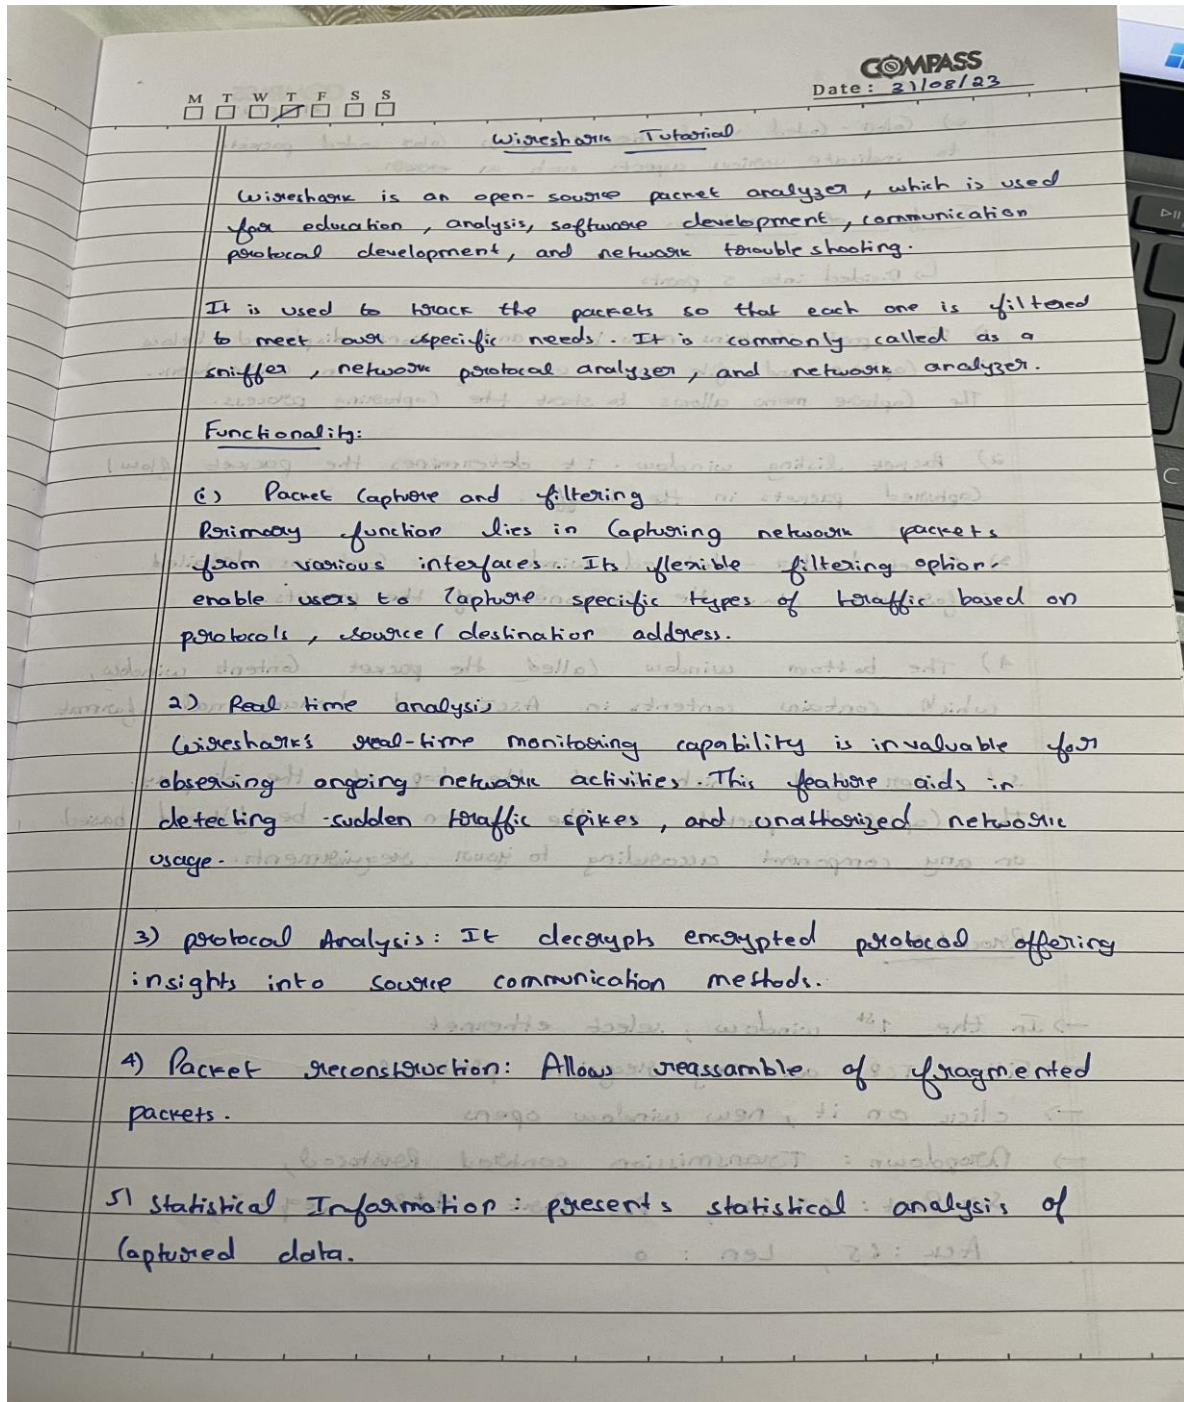 COMPASS
M T W T F S S
Date: 31/08/23
Wireshark Tutorial
Wireshark is an open-source packet analyzer, which is used
for education, analysis, software development, communication
protocol development, and network trouble shooting.
It is used to track the packets so that each one is filtered
to meet our specific needs. It is commonly called as a
sniffer, network protocol analyzer, and network analyzer.
Functionality:
(i) Packet Capture and filtering
Primary function lies in Capturing network packets
from various interfaces. Its flexible filtering option
enable users to Capture specific types of traffic based on
protocols, source / destination address.
2) Real time analysis
Wireshark's real-time monitoring capability is invaluable for
observing ongoing network activities. This feature aids in
detecting sudden traffic spikes, and unathorized network
usage.
3) protocol Analysis: It decrypts encrypted protocol offering
insights into source communication methods.
4) Packet reconstruction: Allows reassamble of fragmented
packets.
5) Statistical Information: presents statistical analysis of
Captured data.